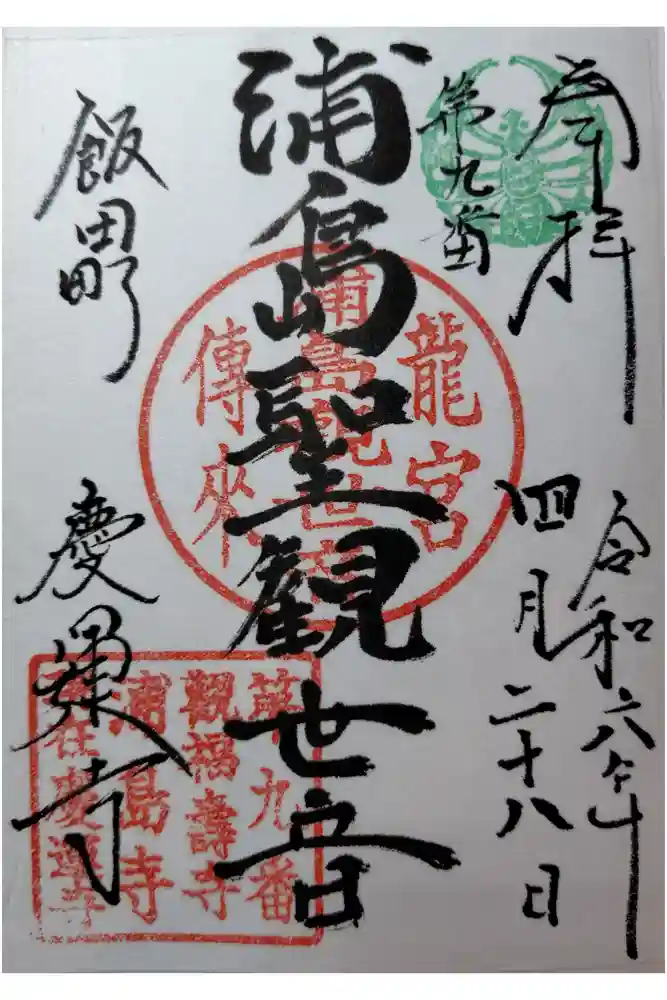 奉拝
令和六年
四月二十八日
第九番
浦島聖観世音
飯田町
慶運寺
龍宮
浦島観世音
傳來
第九番
觀福壽寺
浦島寺
在慶運寺